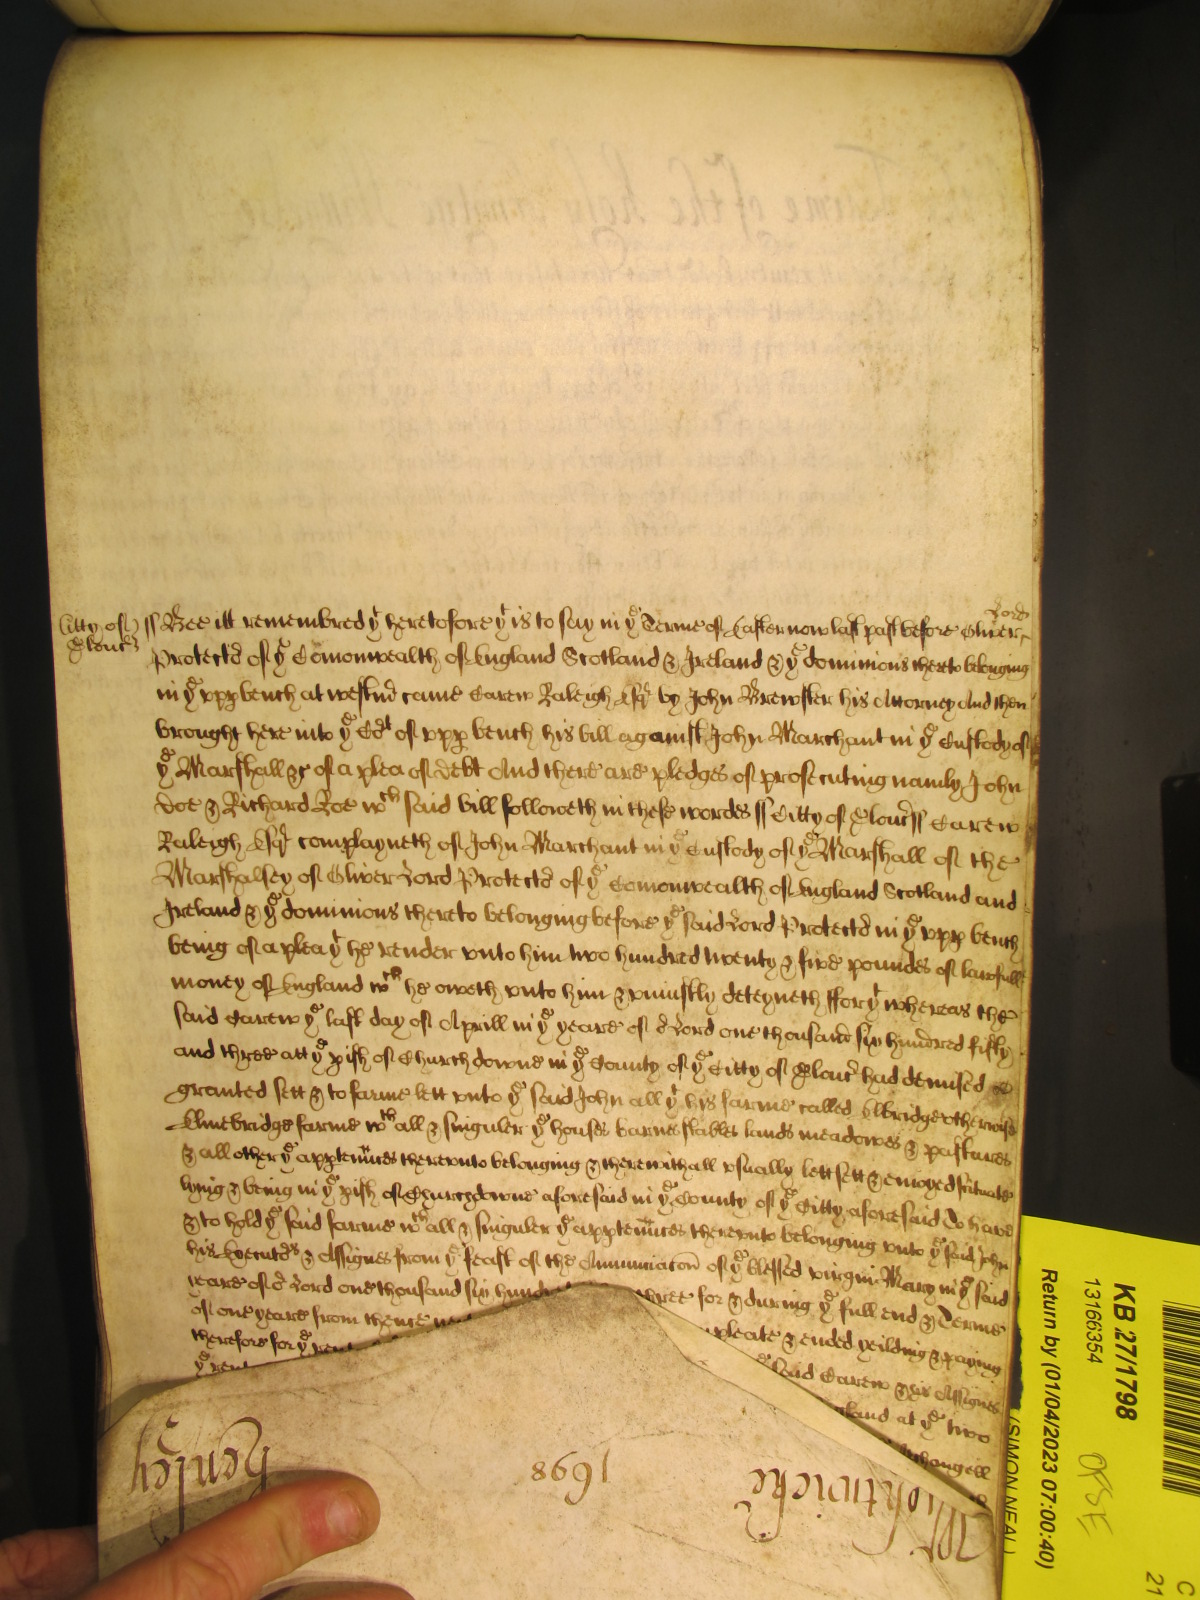 Citty of
Glouc̃
ss Bee itt remembred yt heretofore yt is to say in ye Terme of Easter now last past before Oliver Lord
Protector of ye Comonwealth of England Scotland & Ireland & ye dominions thereto belonging
in ye upp bench at westmr came Carew Raleigh Esqr by John Brewster his Attorney And then
brought here into ye Cort of upp bench his bill against John Marchant in ye Custody of
ye Marshall &c of a plea of debt And there are pledges of prosecuting namly John
Doe & Richard Roe wch said bill followeth in these wordes ss Citty of Glouc̃ ss Carew
Raleigh Esqr complayneth of John Marchant in ye Custody of ye Marshall of the
Marshalsey of Oliver Lord Protector of ye Comonwealth of England Scotland and
Ireland & ye dominions thereto belonging before ye said Lord Protector in ye upp bench
being of a plea yt he render unto him two hundred twenty & five poundes of lawfull
money of England wch he oweth unto him & uniustly deteyneth ffor yt whereas the
said Carew ye last day of Aprill in ye yeare of or Lord one thousand six hundred fifty
and three att ye pish of Churchdowne in ye County of ye Citty of Glouc̃ had demised
granted sett & to farme lett unto ye said John all yt his farme called Elbridge otherwise
Elmebridge farme wth all & singuler ye houses barnes stables lands meadowes & pastures
& all other ye apptenñces thereunto belonging & therewithall usually lett sett & enioyed scituate
lying & being in ye pish of Churchdowne aforesaid in ye County of ye Citty aforesaid To have
& to hold ye said farme wth all & singuler ye apptenñces thereunto belonging unto ye said John
his Executors & Assignes from ye feast of the Annunciacon of ye blessed virgin Mary in ye said
yeare of or Lord one thousand six hundred three for & during ye full end & Terme
of one yeare from thence pleate & ended yeilding & paying
therefore for ye said Carew & his Assignes
ye rent England at ye two
Archangell
Henley
1698
Wm Wightwicke
KB 27/1798
13166354
Return by (01/04/2023 07:00:40)
(SIMON NEAL)
C
21